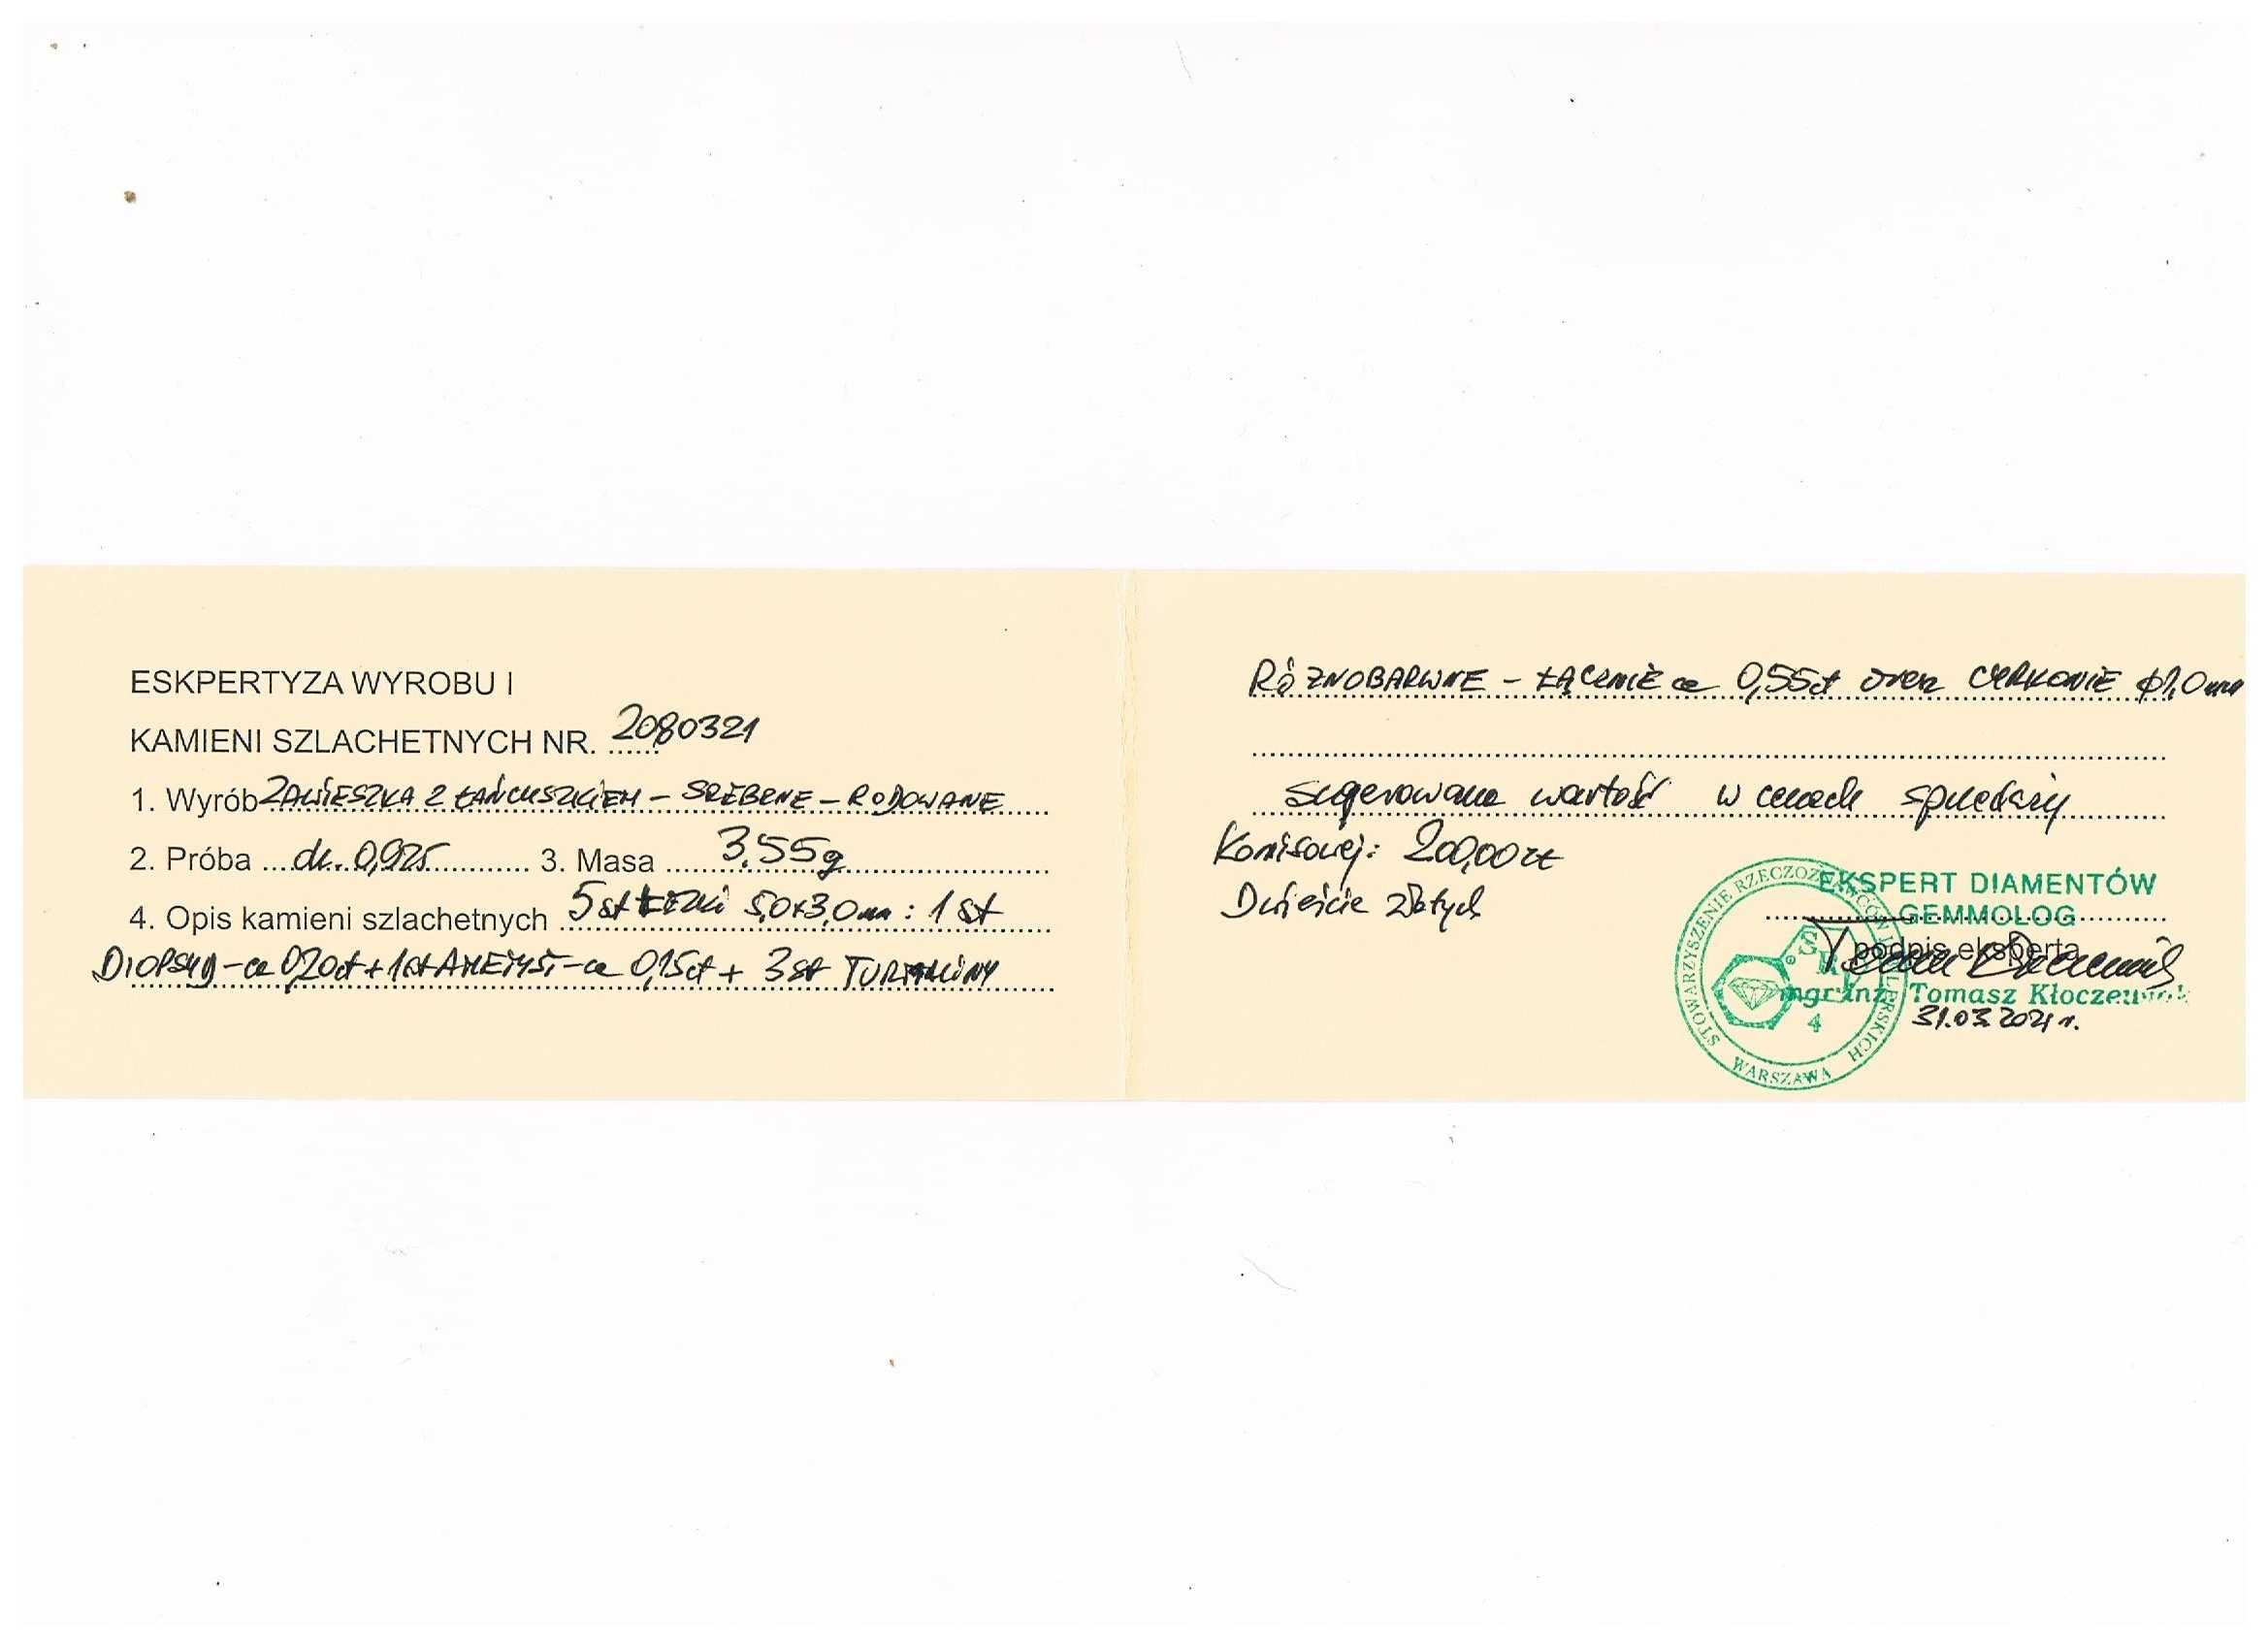 ESKPERTYZA WYROBU I
KAMIENI SZLACHETNYCH NR. 2080321
1. Wyrób ZAWIESZKA Z ŁAŃCUSZKIEM – SREBRNE – RODOWANE
2. Próba ... dk. 0,925 ... 3. Masa ... 3.55g
4. Opis kamieni szlachetnych 5 szt ŁEZKI 5,0x3,0mm : 1 szt
DIOPSYD – ca 0,20ct + 1szt AMETYST – ca 0,15ct + 3 szt TURMALINY
RÓŻNOBARWNE – ŁĄCZNIE ca 0,55ct oraz CYRKONIE ϕ1,0mm
sugerowana wartość w cenach sprzedaży
Komisowej: 200,00zł
Dwieście złotych
EKSPERT DIAMENTÓW
GEMMOLOG
podpis eksperta
mgr inż. Tomasz
31.03.2021 r.
STOWARZYSZENIE RZECZOZNAWCÓW JUBILERSKICH
4
WARSZAWA